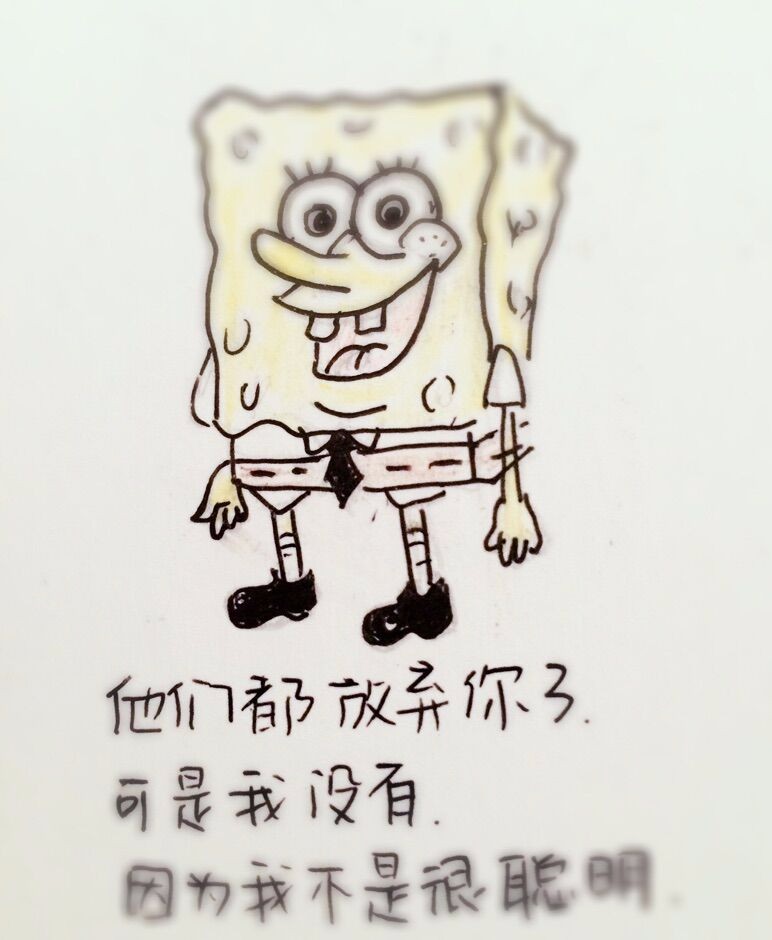 他们都放弃你了.
可是我没有.
因为我不是很聪明.